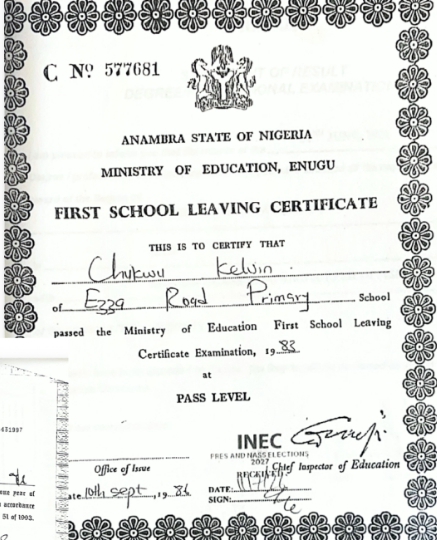 C Nº 577681
ANAMBRA STATE OF NIGERIA
MINISTRY OF EDUCATION, ENUGU
FIRST SCHOOL LEAVING CERTIFICATE
THIS IS TO CERTIFY THAT
Chukwu Kelvin
of Ezza Road Primary School
passed the Ministry of Education First School Leaving
Certificate Examination, 1983
at
PASS LEVEL
INEC
PRES AND NASS ELECTIONS
2027
Office of Issue
RECEIVED
Chief Inspector of Education
ate 10th Sept, 1986
DATE:
SIGN:
431997
51 of 1993.